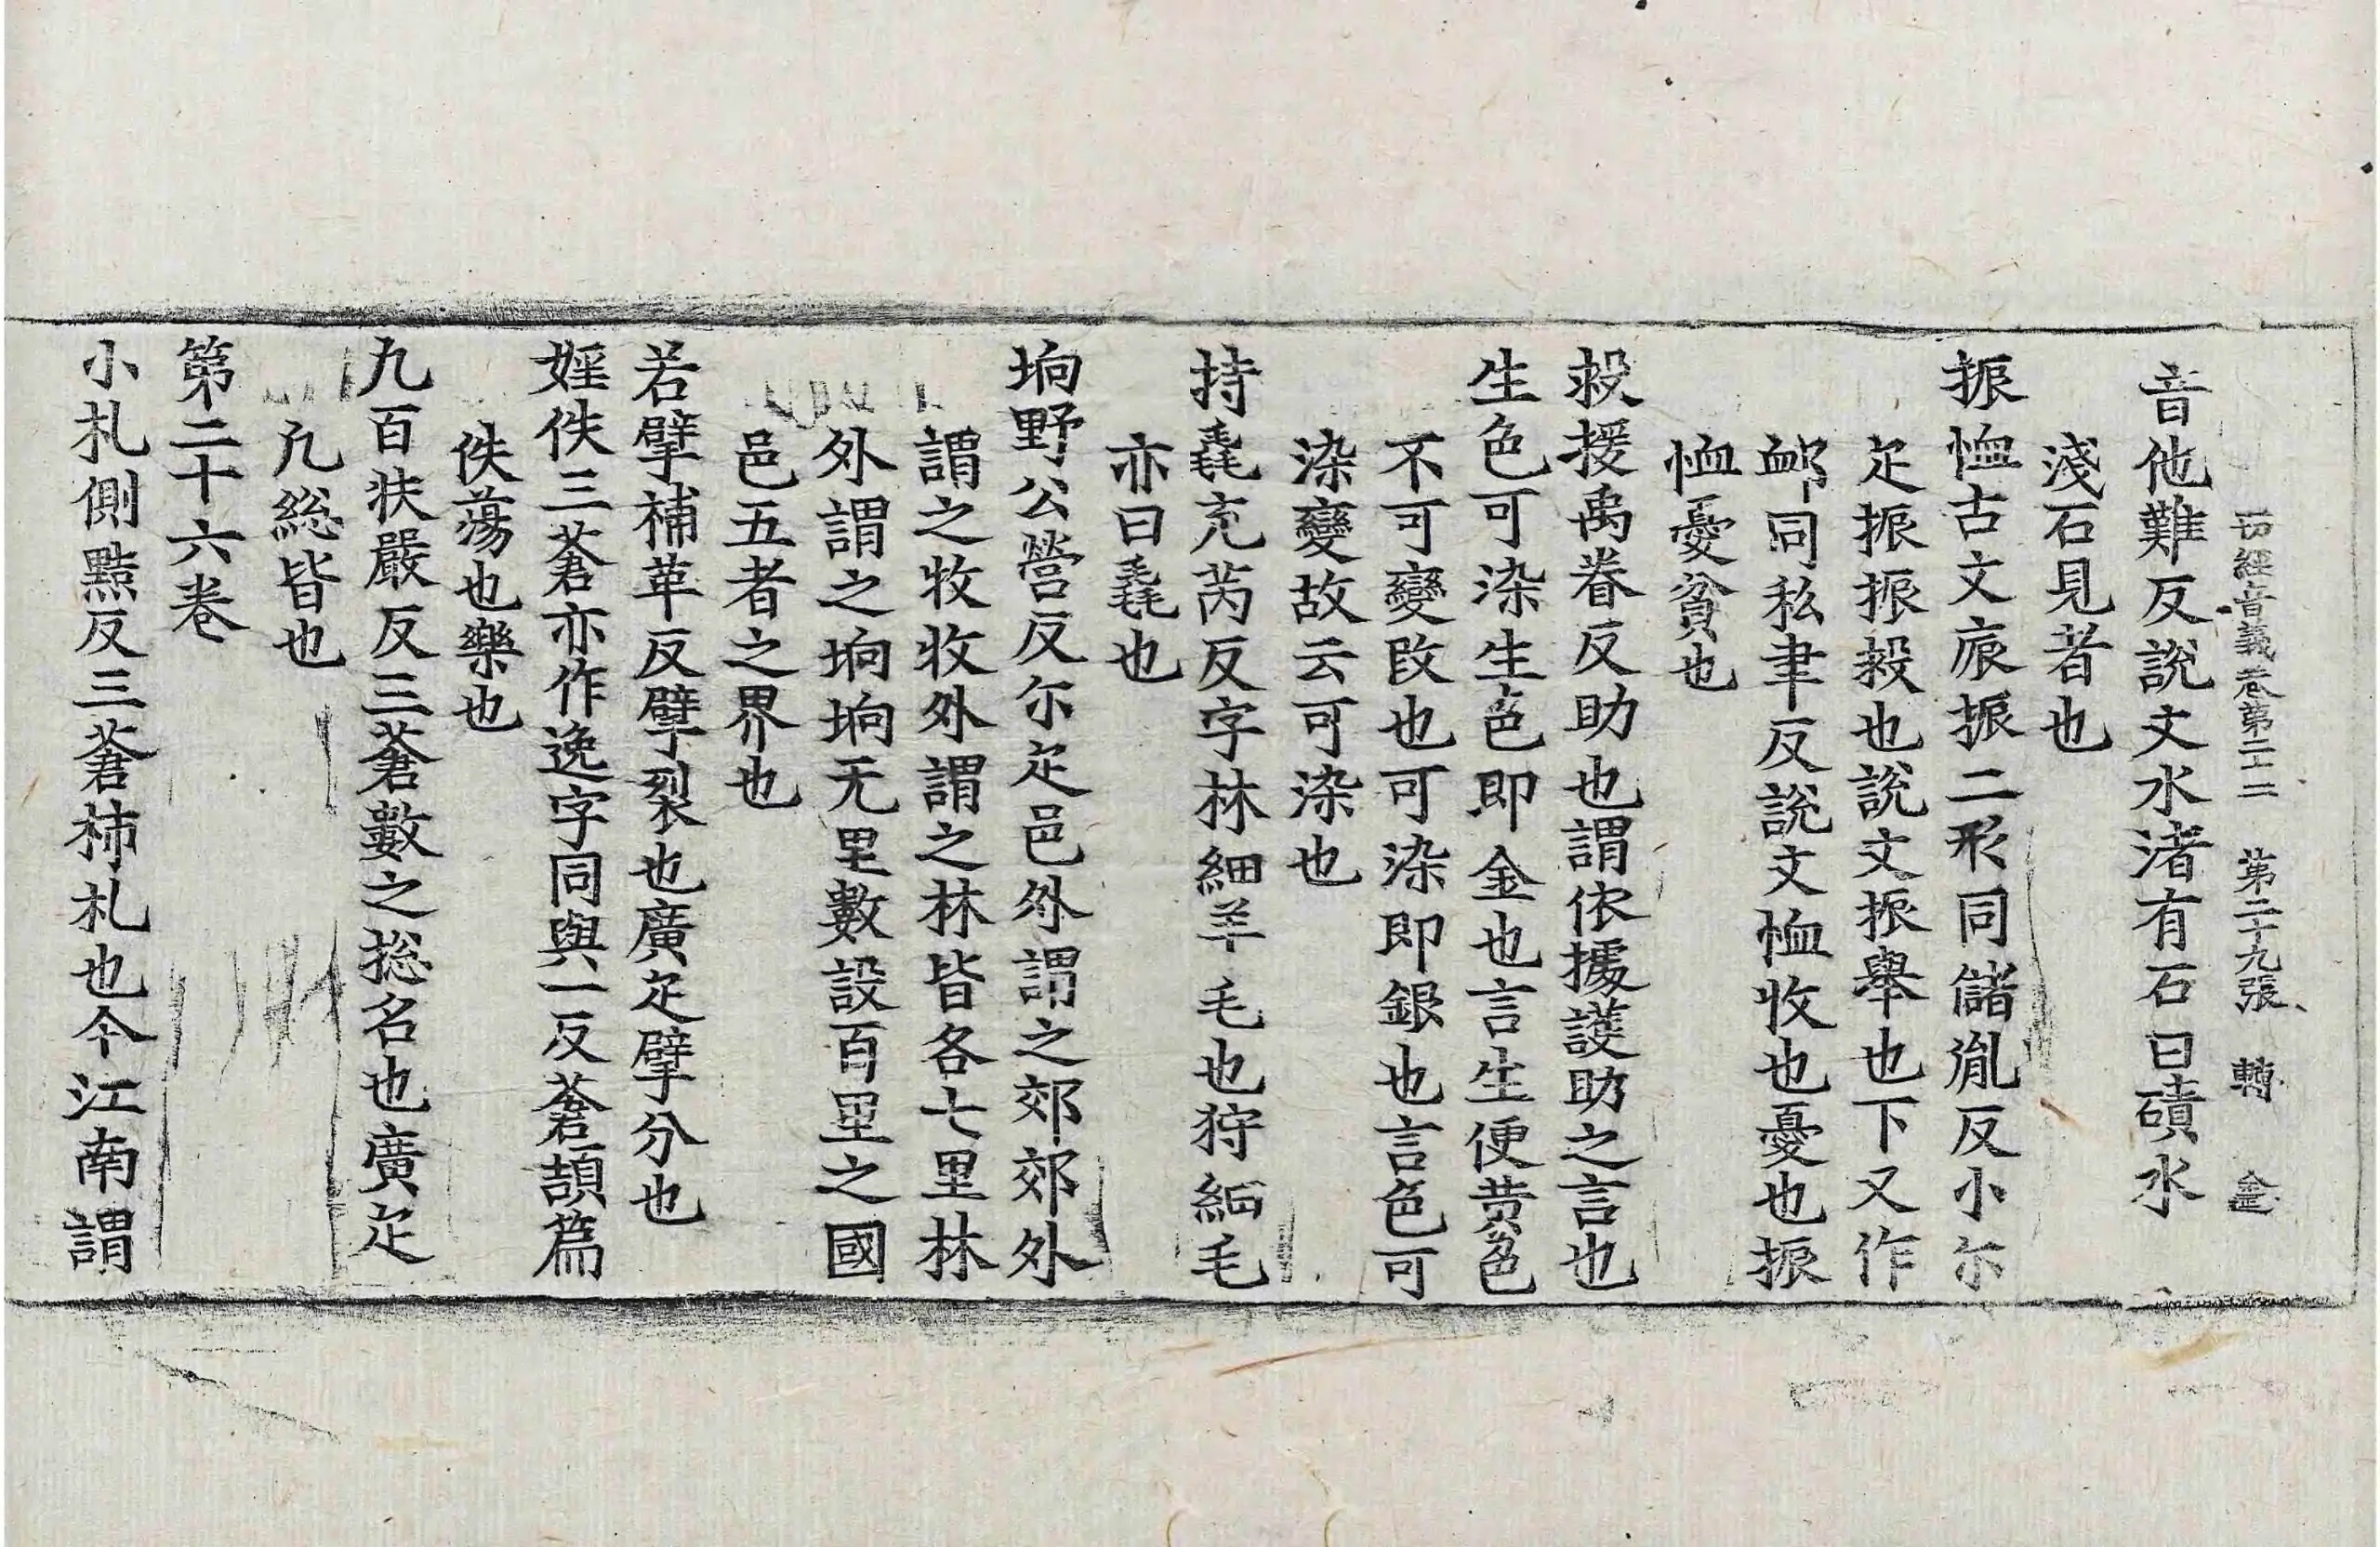 切經音義卷第二十二 第二十九張 轉
音他難反說文水渚有石曰磧水
淺石見者也
振恤古文㡾振二形同儲胤反小尒
疋振振救也說文振舉也下又作
䘏同私聿反說文恤收也憂也振
恤憂貧也
救援禹眷反助也謂依據護助之言也
生色可染生色即金也言生便黄色
不可變改也可染即銀也言色可
染變故云可染也
持毳充芮反字林細羊毛也狩細毛
亦曰毳也
坰野公營反尒疋邑外謂之郊郊外
謂之牧牧外謂之林皆各七里林
外謂之坰坰无里數設百里之國
邑五者之界也
若擘補革反擘裂也廣疋擘分也
婬佚三蒼亦作逸字同與一反蒼頡篇
佚蕩也樂也
九百扶嚴反三蒼數之揔名也廣疋
凢総皆也
第二十六卷
小札側黠反三蒼柿札也今江南謂